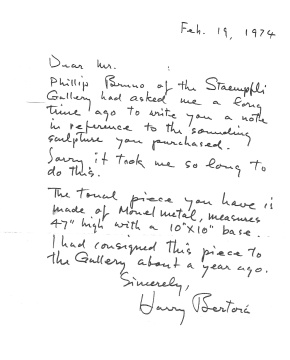 Feb. 19, 1974
Dear Mr.
Phillip Bruno of the Staempfli
Gallery had asked me a long
time ago to write you a note
in reference to the sounding
sculpture you purchased.
Sorry it took me so long to
do this.
The tonal piece you have is
made of Monel metal, measures
47" high with a 10"x10" base.
I had consigned this piece to
the Gallery about a year ago.
Sincerely,
Harry Bertoia